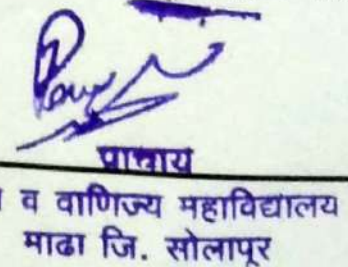 प्राचार्य
व वाणिज्य महाविद्यालय
माढा जि. सोलापूर